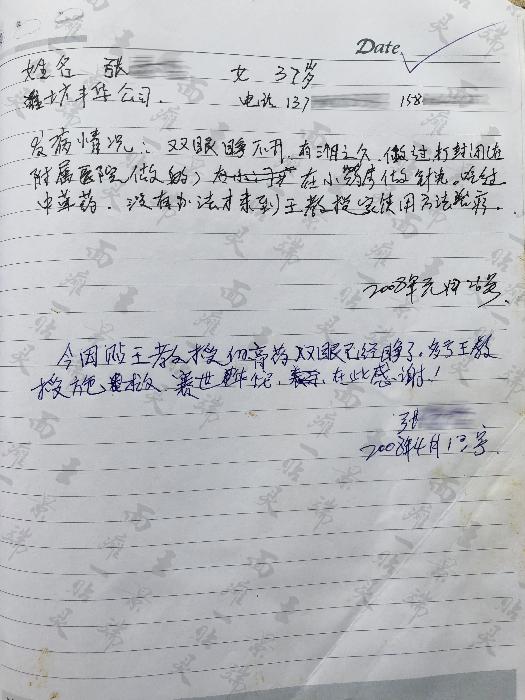 Date
姓名 张 女 37岁
潍坊丰华公司. 电话137 158
发病情况: 双眼睁不开, 有三年之久, 做过打封闭
附属医院(做的) 在小药房做针灸。吃过
中草药. 没有办法才来到王教授家使用方法治疗.
2008年元月26号
今因贴王教授的膏药双眼已经睁了.
授施, 赛世华佗, 在此感谢!
张
2008年4月13号